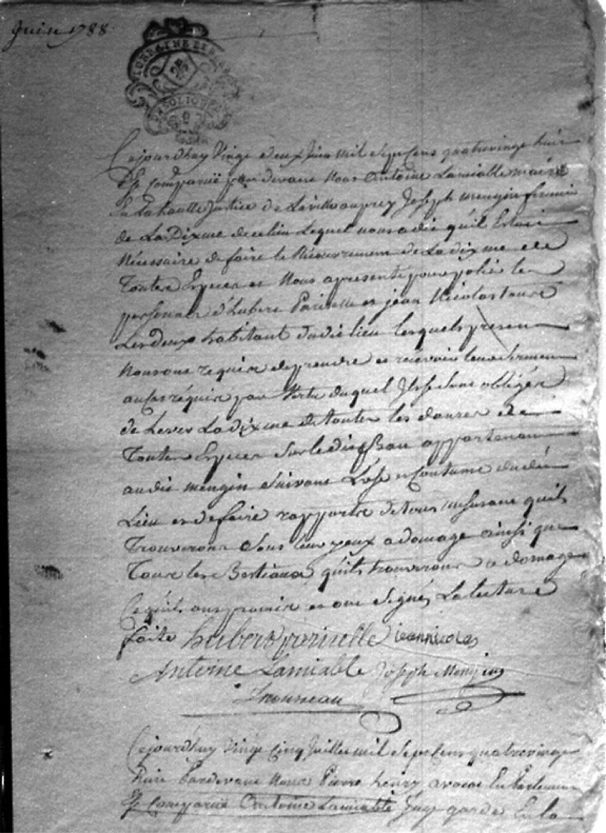 Juin 1788
LORRAINE ET BAR
Cejourdhuy Vingt deux Juin mil Sept Cens quatrevingt huit
Est Comparüe pardevant Nous Antoine Lamiable maire
En la haute Justice de Laville auprey Joseph mengin fermié
de La Dixme de ce lieu Lequel nous a dit qu'il Estoit
Nécessaire de faire le Recouvrement de La dixme de
Toutes Espèces et Nous apresenté pour polié les
personnes d'hubert Pariselle et jean Nicolas
Les deux habitant dudit lieu lesquels présent
Nous ont requis de prendre et recevoir leur serment
au Ses réquis par Vertu duquel Ils se sont obligés
de Lever La dixme de toutes les danrée de
Toutes Espèces Sur le dit Ban appartenant
audit mengin Suivant L'use et Coutume dudit
Lieu et de faire rapporte de tous mesusant quils
Trouveront Sous leur yeux a domage ainsi que
Tous les Bestiaux quils trouveront a domage
Ce quils ont promis et ont Signés La lecture
faite hubert pariselle jean nicolas
Antoine Lamiable Joseph Mengin
Cejourdhuy Vingt Cinq Juillet mil Sept Cens quatrevingt
huit Pardevant Nous Pierre henry avocat En Parlement
Est Comparüe Antoine Lamiable Juge garde En la